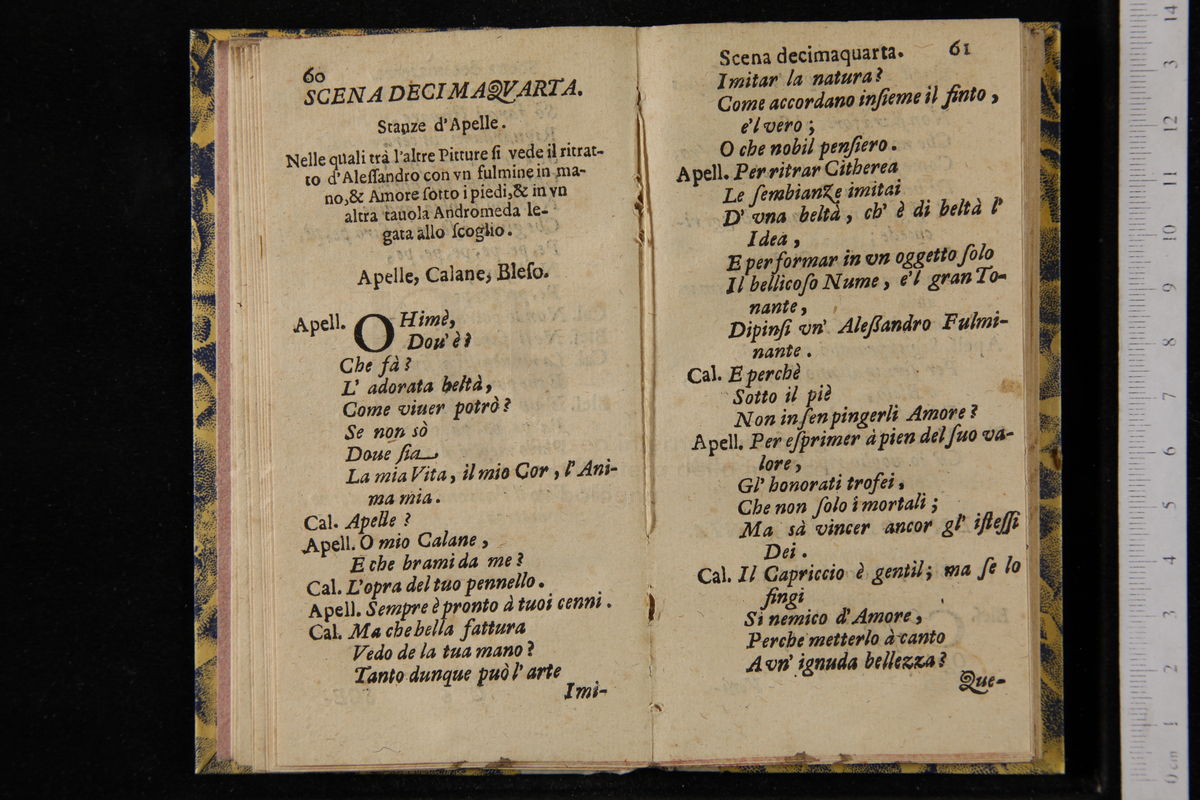 60
SCENA DECIMAQVARTA.
Stanze d'Apelle.
Nelle quali trà l'altre Pitture ſi vede il ritrat-
to d'Aleſſandro con vn fulmine in ma-
no,& Amore ſotto i piedi,& in vn
altra tauola Andromeda le-
gata allo ſcoglio.
Apelle, Calane, Bleſo.
Apell. OHimè,
Dou' è?
Che fà?
L' adorata beltà,
Come viuer potrò?
Se non sò
Doue ſia
La mia Vita, il mio Cor, l' Ani-
ma mia.
Cal. Apelle?
Apell. O mio Calane,
E che brami da me?
Cal. L'opra del tuo pennello.
Apell. Sempre è pronto à tuoi cenni.
Cal. Ma che bella fattura
Vedo de la tua mano?
Tanto dunque può l' arte
Imi-
Scena decimaquarta. 61
Imitar la natura?
Come accordano inſieme il finto,
e'l vero;
O che nobil penſiero.
Apell. Per ritrar Citherea
Le ſembianze imitai
D' vna beltà, ch' è di beltà l'
Idea,
E per formar in vn oggetto ſolo
Il bellicoſo Nume, e'l gran To-
nante,
Dipinſi vn' Aleßandro Fulmi-
nante.
Cal. E perchè
Sotto il piè
Non inſen pingerli Amore?
Apell. Per eſprimer à pien del ſuo va-
lore,
Gl' honorati trofei,
Che non ſolo i mortali;
Ma sà vincer ancor gl' iſteſſi
Dei.
Cal. Il Capriccio è gentil; ma ſe lo
fingi
Si nemico d' Amore,
Perche metterlo à canto
A vn' ignuda bellezza?
Que-